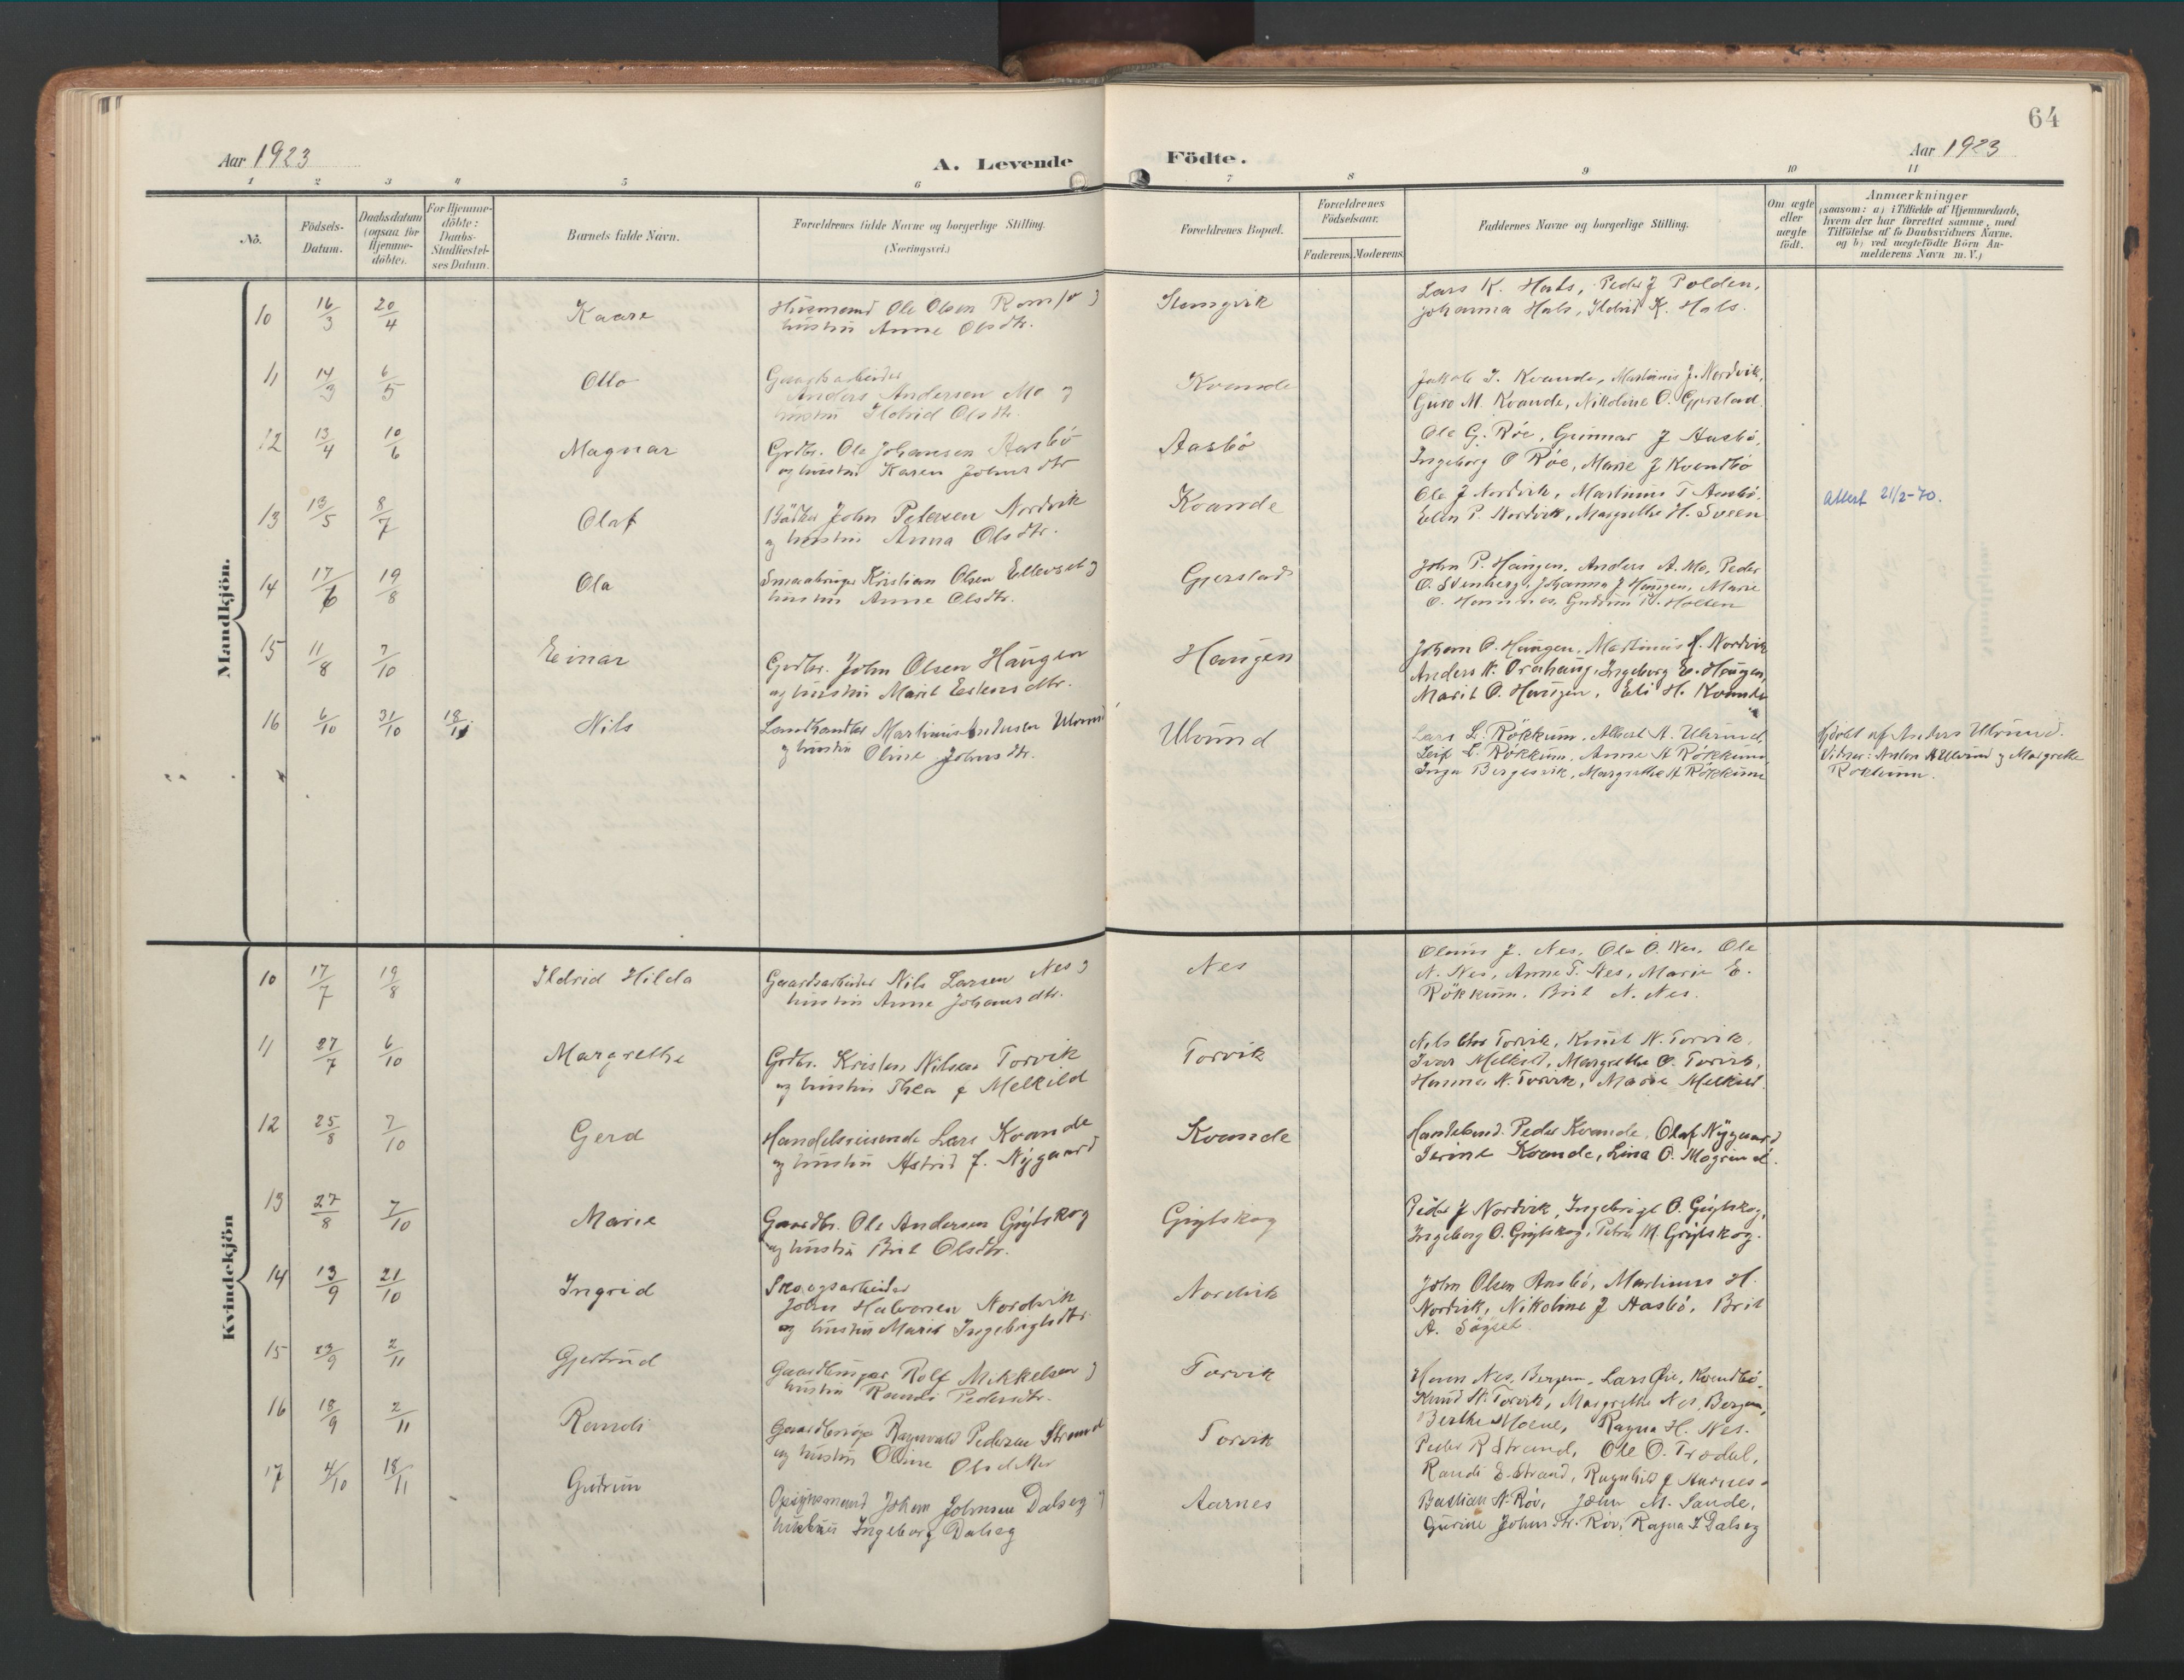 64
Aar 1923
A. Levende Födte.
Aar 1923
1 2 3 4 5 6 7 8 9 10 11
Nô.
Födsels-Datum.
Daabsdatum (ogsaa for Hjemme-döbte).
For Hjemme-döbte: Daabs-Stadfæstel-ses Datum.
Barnets fulde Navn.
Forældrenes fulde Navne og borgerlige Stilling.
(Næringsvei.)
Forældrenes Bopæl.
Forældrenes Födselsaar.
Faderens. Moderens.
Faddernes Navne og borgerlige Stilling.
Om ægte eller uægte födt.
Anmærkninger
(saasom: a) i Tilfælde af Hjemmedaab,
hvem der har forrettet samme, med
Tilföielse af to Daabsvidners Navne.
og b) ved uægtefödte Börn An-
melderens Navn m. V.)
Mandkjön.
10 16/3 20/4 Kaare
Husmand Ole Olsen
hustru Anne Olsdtr.
Stangvik
Lars K. Hals, Peder J Polden,
Johanna Hals, Ildrid K. Hals.
11 14/3 6/5 Otto
Gaardsarbeider
Anders Andersen Mo og
hustru Ildrid Olsdtr.
Kvande
Jakob J. Kvande, Martinus J. Nordvik,
Guro M. Kvande, Nikoline O. Gjerstad.
12 13/4 10/6 Magnar
Grdbr. Ole Johansen Aasbö
og hustru Karen Johns dtr
Aasbö
Ole G. Röe, Gunnar J Aasbö,
Ingeborg O Röe, Marie J Kvendbö
13 13/5 8/7 Olaf
John Petersen Nordvik
og hustru Anna Olsdtr.
Kvande
Ole J Nordvik, Martinus T Aasbö.
Elen P. Nordvik, Margrethe H. Sveen
Attest 21/2-70.
14 17/6 19/8 Ola
Smaabruger Kristian Olsen Ellevset og
hustru Anne Olsdtr.
Gjerstad
John P. Haugen, Anders A. Mo, Peder
O. Svinberg, Johanna J Haugen, Marie
O. Gudrun Holten
15 11/8 7/10 Einar
Grdbr. John Olsen Haugen
og hustru Marit Estensdtr.
Haugen
Johan O. Haugen, Martinus H. Nordvik
Anders K. Ingeborg E. Haugen,
Marit O. Haugen, Eli H. Kvande
16 6/10 31/10 18/11 Nils
Landhandler Martinus Andersen Ulvund
og hustru Oline Johnsdtr.
Ulvund
Lars L. Rökkum, Albert A. Ulvund,
Leif L. Rökkum, Anne A Rökkum,
Inga Bergesvik, Margrethe A Rökkum
Hjdöbt af Anders Ulvund.
Vidner: Anders A Ulvund og Margrethe
Rökkum.
Kvindekjön
10 17/7 19/8 Ildrid Hilda
Gaardsarbeider Nils Larsen Nes og
hustru Anne Johansdtr.
Nes
J. Nes, Ola O. Nes, Ole
N. Nes, Anne T. Nes, Marie E.
Rökkum, Brit N. Nes.
11 27/7 6/10 Margrethe
Grdbr. Kristen Nilsen Torvik
og hustru Thea J Melkild
Torvik
Nils Torvik, Knut N. Torvik,
Ivar Melkild, Margrethe O. Torvik,
Hanna N. Torvik, Marie Melkild.
12 25/8 7/10 Gerd
Handelsreisende Lars Kvande
og hustru Astrid J. Nygaard
Kvande
Peder Kvande, Olaf Nygaard
Serine Kvande, Lina O. Mogrind.
13 27/8 7/10 Marie
Gaardbr. Ole Andersen Grytskog
og hustru Brit Olsdtr.
Grytskog
Peder J Nordvik, Ingebrigt O. Grytskog,
Ingeborg O. Grytskog, Petra M. Grytskog.
14 13/9 21/10 Ingrid
Skoogsarbeider
John Halvorsen Nordvik
og hustru Marit Ingebrigtsdtr.
Nordvik
John Olsen Aasbö, Martinus H.
Nordvik, Nikoline J Aasbö, Brit
A. Søyset
15 23/9 2/11 Gjertrud
Gaardbruger Rolf Mikkelsen og
hustru Randi Pedersdtr.
Torvik
Nes, Bergen, Lars Øie, Kvendbö.
Knud N. Torvik, Margrethe Nes, Bergen,
Berthe Moene, Ragna H. Nes.
16 18/9 2/11 Randi
Gaardbruger Ragnvald Pedersen Strand
og hustru Oline Olsdtter
Torvik
Peder R Strand, Ole O. Trædal,
Randi E. Strand, Ragnhild J Aarnes.
17 4/10 18/11 Gudrun
Opsynsmand Johan Johnsen Dalseg og
hustru Ingeborg Dalseg
Aarnes
Bastian N. Röv, John M. Sande,
Gurine Johnsdtr. Röv, Ragna J Dalseg